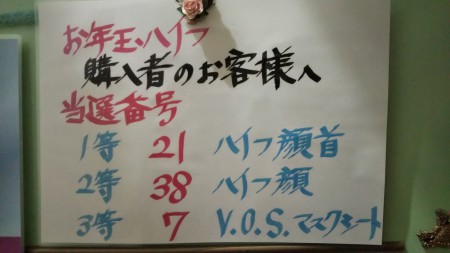 お年玉・ハイフ
購入者のお客様へ
当選番号
1等 21 ハイフ顔首
2等 38 ハイフ顔
3等 7 V.O.S.マスクシート